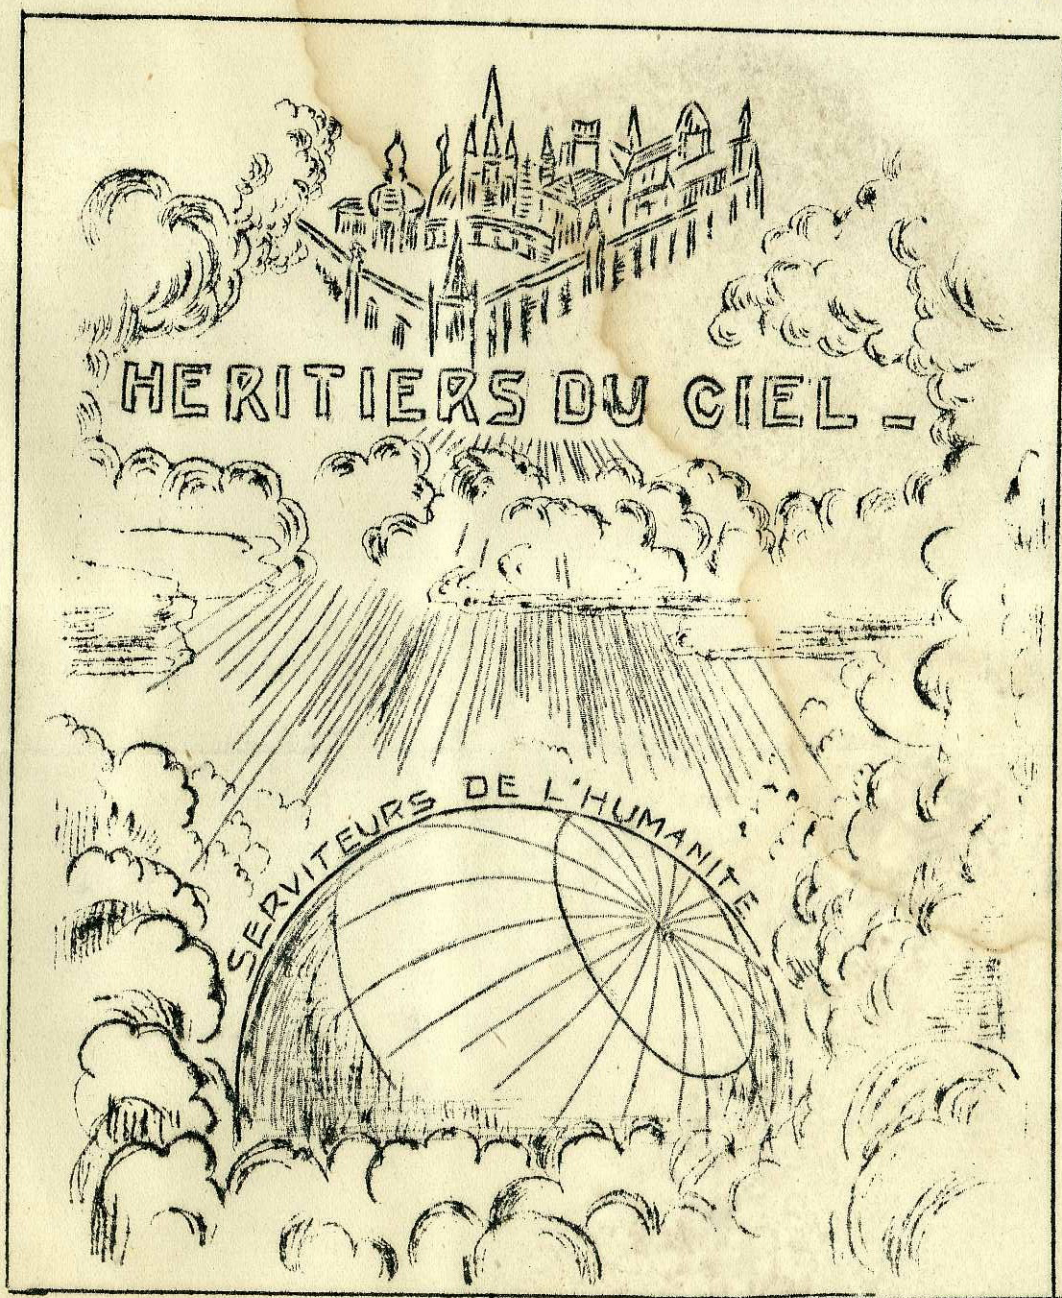 HERITIERS DU CIEL -
SERVITEURS DE L'HUMANITE